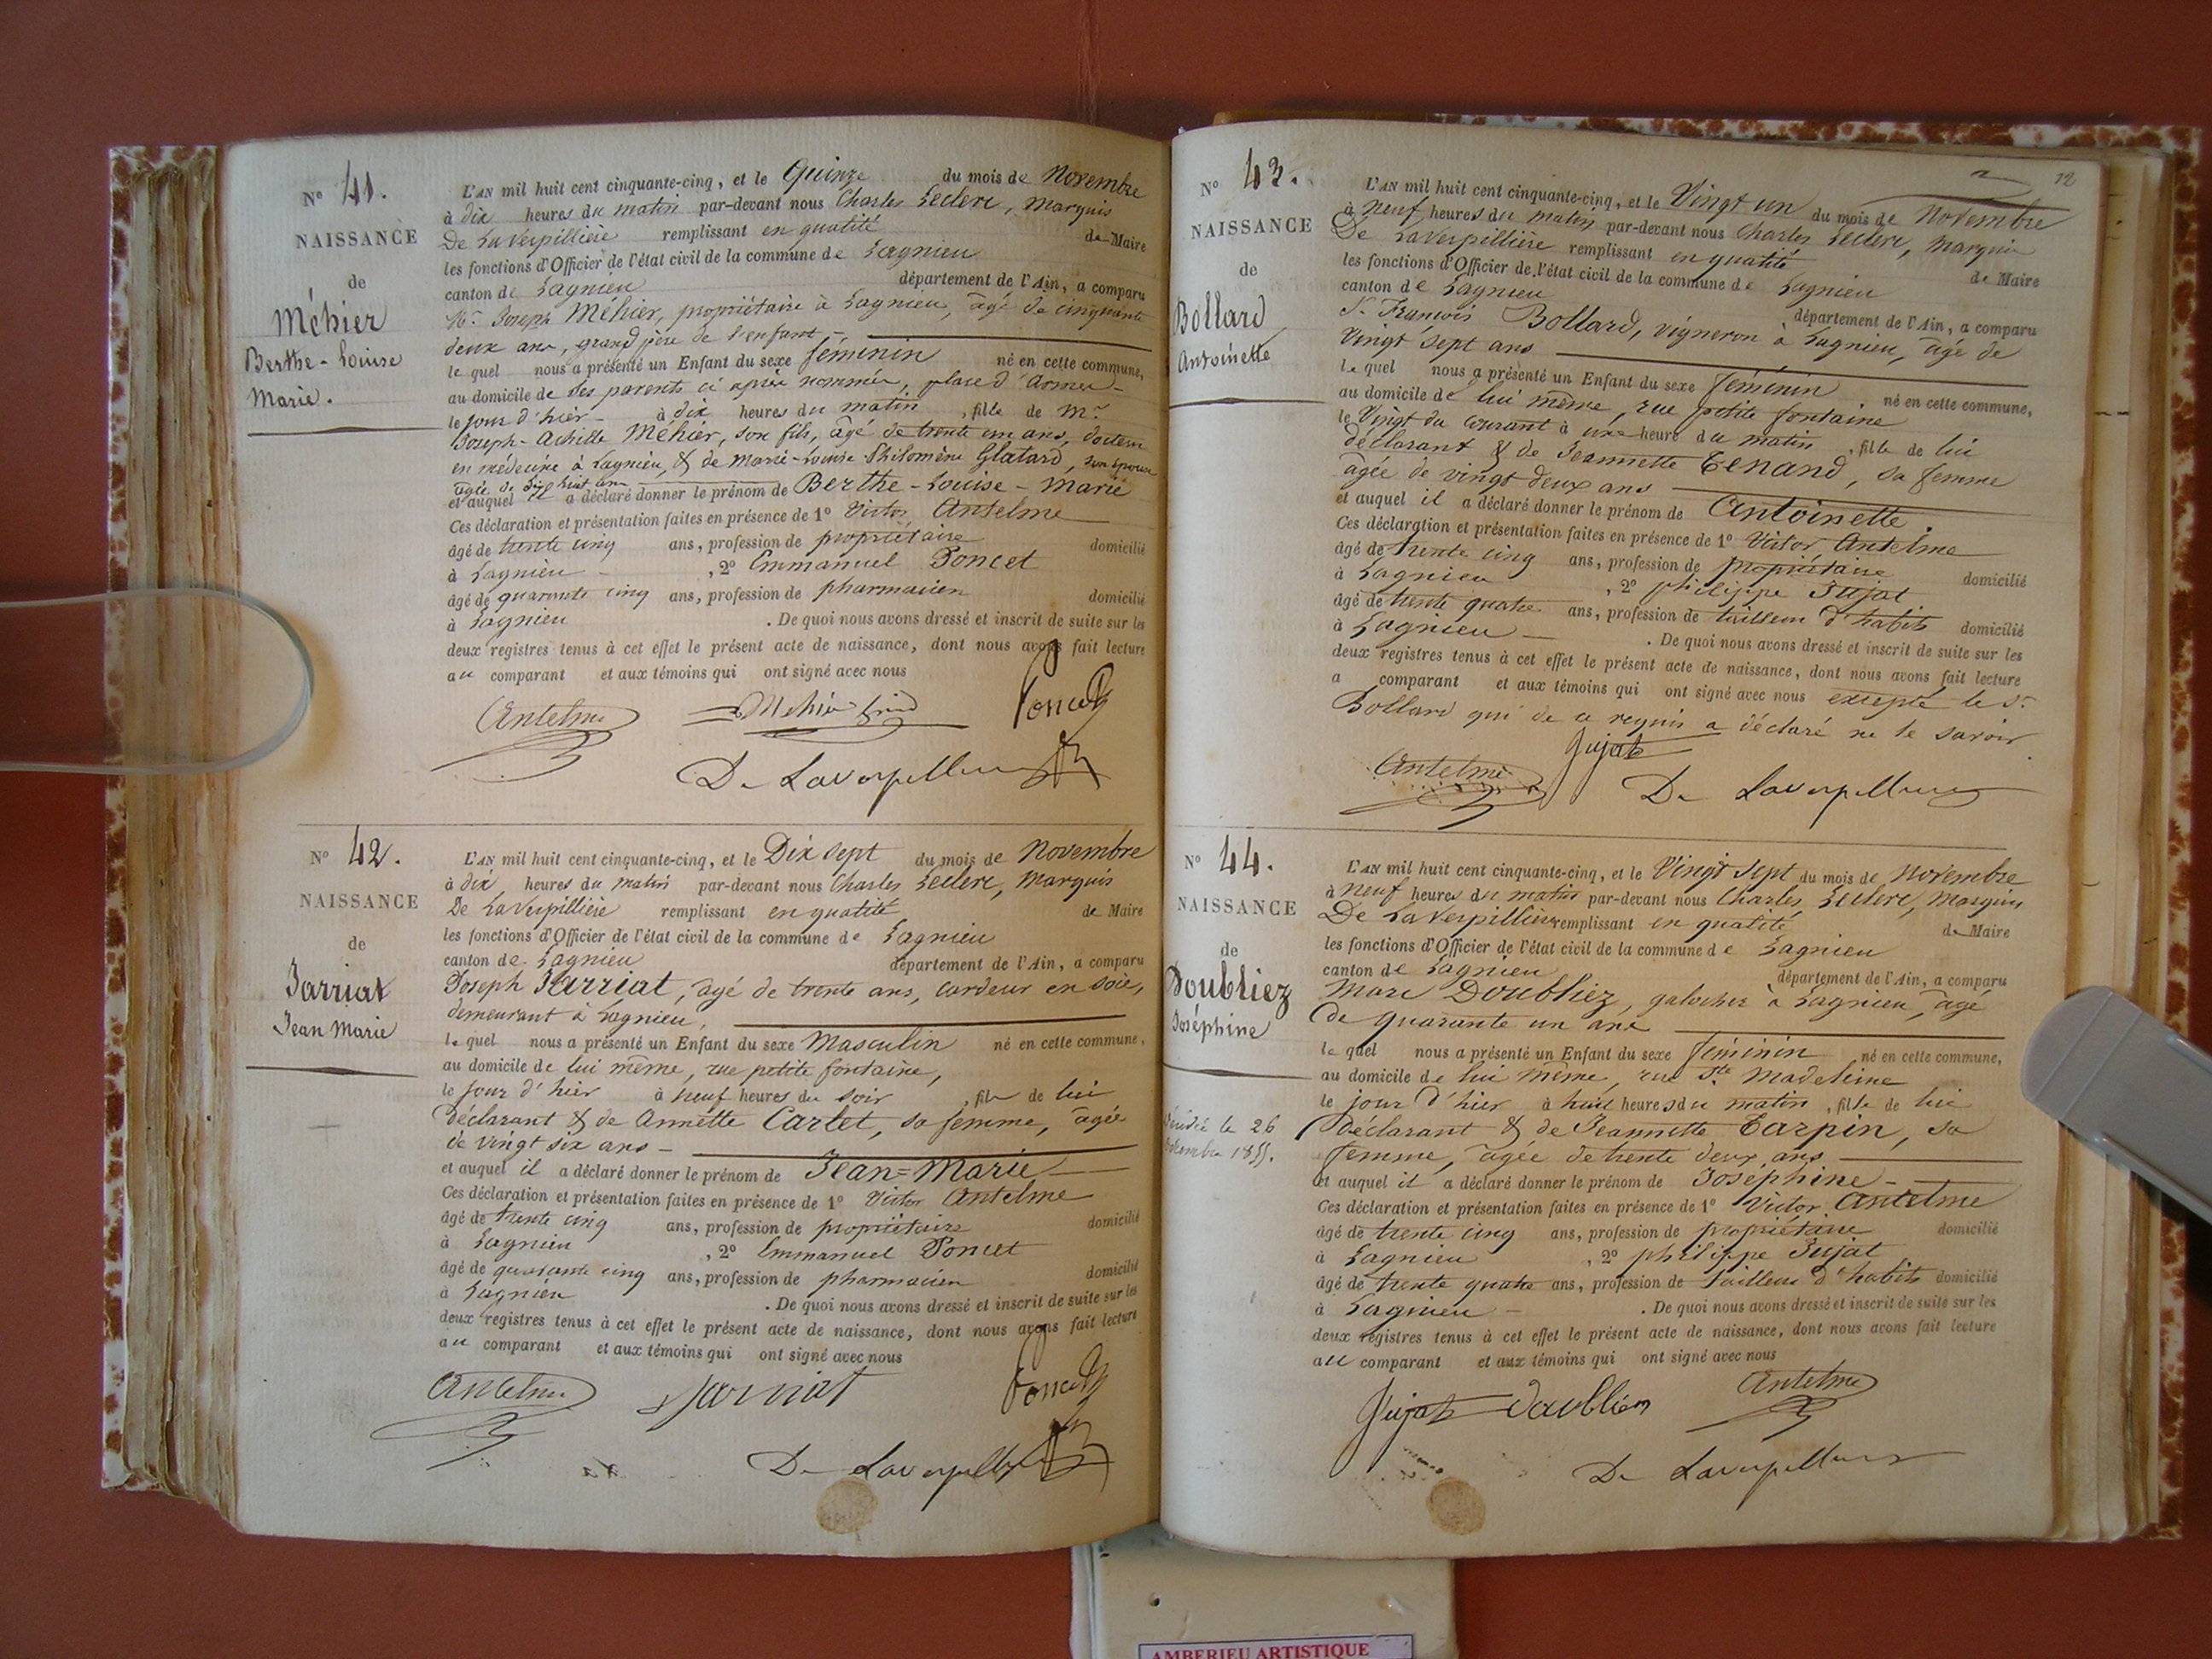 N° 41.
NAISSANCE
de
Méhier
Berthe-Louise
Marie.
L'AN mil huit cent cinquante-cinq, et le Quinze du mois de Novembre
à dix heures du matin par-devant nous Charles Leclerc, Marquis
De LaVerpillière remplissant en qualité de Maire
les fonctions d'Officier de l'état civil de la commune de Lagnieu
canton de Lagnieu département de l'Ain, a comparu
Mr. Joseph Méhier, propriétaire à Lagnieu, âgé de cinquante
deux ans, grand père de l'enfant,
le quel nous a présenté un Enfant du sexe féminin né en cette commune,
au domicile de ses parents ci après nommés, place d'armes
le jour d'hier à dix heures du matin, fille de Mr.
Joseph-Achille Méhier, son fils, âgé de trente un ans, docteur
en médecine à Lagnieu, & de Marie-Louise Philomène Glatard, son épouse
âgée de dix huit ans
et auquel il a déclaré donner le prénom de Berthe-Louise-Marie
Ces déclaration et présentation faites en présence de 1° Victor Antelme
âgé de trente cinq ans, profession de propriétaire domicilié
à Lagnieu, 2° Emmanuel Poncet
âgé de quarante cinq ans, profession de pharmacien domicilié
à Lagnieu. De quoi nous avons dressé et inscrit de suite sur les
deux registres tenus à cet effet le présent acte de naissance, dont nous avons fait lecture
au comparant et aux témoins qui ont signé avec nous
Antelme Méhier Poncet
De Laverpillière
N° 42.
NAISSANCE
de
Jarriat
Jean Marie
L'AN mil huit cent cinquante-cinq, et le Dix sept du mois de Novembre
à dix heures du matin par-devant nous Charles Leclerc, Marquis
De LaVerpillière remplissant en qualité de Maire
les fonctions d'Officier de l'état civil de la commune de Lagnieu
canton de Lagnieu département de l'Ain, a comparu
Joseph Jarriat, âgé de trente ans, cardeur en soie,
demeurant à Lagnieu,
le quel nous a présenté un Enfant du sexe Masculin né en cette commune,
au domicile de lui même, rue petite fontaine,
le jour d'hier à neuf heures du soir, fils de lui
déclarant & de Annette Carlet, sa femme, âgée
de vingt six ans
et auquel il a déclaré donner le prénom de Jean=Marie
Ces déclaration et présentation faites en présence de 1° Victor Antelme
âgé de trente cinq ans, profession de propriétaire domicilié
à Lagnieu, 2° Emmanuel Poncet
âgé de quarante cinq ans, profession de pharmacien domicilié
à Lagnieu. De quoi nous avons dressé et inscrit de suite sur les
deux registres tenus à cet effet le présent acte de naissance, dont nous avons fait lecture
au comparant et aux témoins qui ont signé avec nous
Antelme Jarriat Poncet
De Laverpillière
12
N° 43.
NAISSANCE
de
Bollard
Antoinette
L'AN mil huit cent cinquante-cinq, et le Vingt un du mois de Novembre
à neuf heures du matin par-devant nous Charles Leclerc, Marquis
De LaVerpillière remplissant en qualité de Maire
les fonctions d'Officier de l'état civil de la commune de Lagnieu
canton de Lagnieu département de l'Ain, a comparu
S. François Bollard, vigneron à Lagnieu, âgé de
vingt sept ans
le quel nous a présenté un Enfant du sexe féminin né en cette commune,
au domicile de lui même, rue petite fontaine
le Vingt du courant à une heure du matin, fille de lui
déclarant & de Jeannette Tenand, sa femme
âgée de vingt deux ans
et auquel il a déclaré donner le prénom de Antoinette.
Ces déclaration et présentation faites en présence de 1° Victor Antelme
âgé de trente cinq ans, profession de propriétaire domicilié
à Lagnieu, 2° philippe Jujat
âgé de trente quatre ans, profession de tailleur d'habits domicilié
à Lagnieu. De quoi nous avons dressé et inscrit de suite sur les
deux registres tenus à cet effet le présent acte de naissance, dont nous avons fait lecture
a comparant et aux témoins qui ont signé avec nous excepté le Sr.
Bollard qui de ce requis a déclaré ne le savoir
Antelme Jujat
De Laverpillière
N° 44.
NAISSANCE
de
Doubliez
Joséphine
26
1855.
L'AN mil huit cent cinquante-cinq, et le Vingt sept du mois de Novembre
à neuf heures du matin par-devant nous Charles Leclerc, Marquis
De LaVerpillière remplissant en qualité de Maire
les fonctions d'Officier de l'état civil de la commune de Lagnieu
canton de Lagnieu département de l'Ain, a comparu
Marc Doubliez, galocher à Lagnieu, âgé
de quarante un ans
le quel nous a présenté un Enfant du sexe féminin né en cette commune,
au domicile de lui même, rue Ste Madeleine
le jour d'hier à huit heures du matin, fille de lui
déclarant & de Jeannette Tarpin, sa
femme, âgée de trente deux ans
et auquel il a déclaré donner le prénom de Joséphine
Ces déclaration et présentation faites en présence de 1° Victor Antelme
âgé de trente cinq ans, profession de propriétaire domicilié
à Lagnieu, 2° philippe Jujat
âgé de trente quatre ans, profession de tailleur d'habits domicilié
à Lagnieu. De quoi nous avons dressé et inscrit de suite sur les
deux registres tenus à cet effet le présent acte de naissance, dont nous avons fait lecture
au comparant et aux témoins qui ont signé avec nous
Jujat Doubliez Antelme
De Laverpillière
AMBERIEU ARTISTIQUE